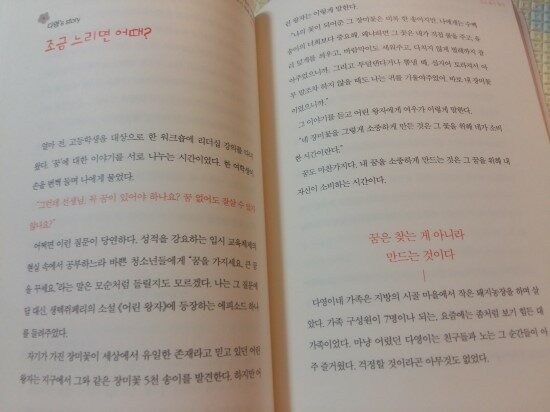 다영's story
조금 느리면 어때?
얼마 전, 고등학생을 대상으로 한 워크숍에 리더십 강의를 다녀
왔다. '꿈'에 대한 이야기를 서로 나누는 시간이었다. 한 여학생이
손을 번쩍 들며 나에게 물었다.
"그런데 선생님, 꼭 꿈이 있어야 하나요? 꿈 없어도 잘살 수 있지
않나요?"
어쩌면 이런 질문이 당연하다. 성적을 강요하는 입시 교육체제의
현실 속에서 공부하느라 바쁜 청소년들에게 "꿈을 가지세요. 큰 꿈
을 꾸세요."라는 말은 모순처럼 들릴지도 모르겠다. 나는 그 질문에
답 대신, 생텍쥐페리의 소설 《어린 왕자》에 등장하는 에피소드 하나
를 들려주었다.
자기가 가진 장미꽃이 세상에서 유일한 존재라고 믿고 있던 어린
왕자는 지구에서 그와 같은 장미꽃 5천 송이를 발견한다. 하지만 어
린 왕자는 이렇게 말한다.
"나의 꽃이 되어준 그 장미꽃은 비록 한 송이지만, 나에게는 수백
송이의 너희보다 중요해. 왜냐하면 그 꽃은 내가 직접 물을 주고, 유
리 덮개를 씌우고, 바람막이도 세워주고, 다치지 않게 벌레까지 잡
아주었으니까. 그리고 투덜댄다거나 뽐낼 때, 심지어 토라져서 아
무 말조차 하지 않을 때도 나는 귀를 기울여주었어, 바로 내 장미꽃
이었으니까."
그 이야기를 듣고 어린 왕자에게 여우가 이렇게 말한다.
"네 장미꽃을 그렇게 소중하게 만든 것은 그 꽃을 위해 네가 소비
한 시간이란다."
꿈도 마찬가지다. 내 꿈을 소중하게 만드는 것은 그 꿈을 위해 내
자신이 소비하는 시간이다.
꿈은 찾는 게 아니라
만드는 것이다
다영이네 가족은 지방의 시골 마을에서 작은 돼지농장을 하며 살
았다. 가족 구성원이 7명이나 되는, 요즘에는 좀처럼 보기 힘든 대
가족이었다. 마냥 어렸던 다영이는 친구들과 노는 그 순간들이 아
주 즐거웠다. 걱정할 것이라곤 아무것도 없었다.